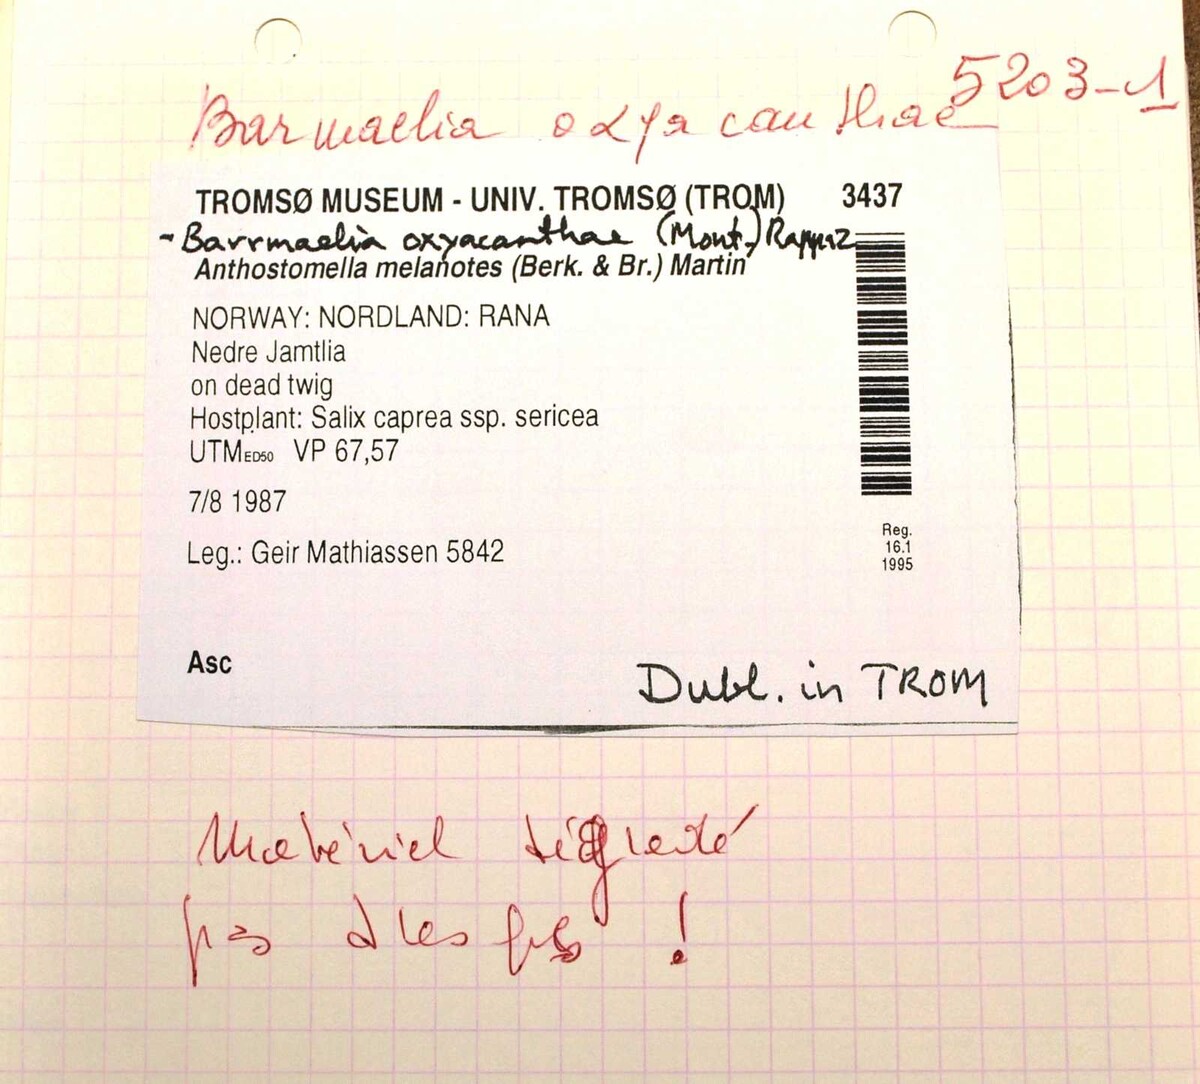 5203-1
Barmaelia oxyacanthae
TROMSØ MUSEUM - UNIV. TROMSØ (TROM) 3437
- Barrmaelia oxyacanthae (Mont.) Rappaz
Anthostomella melanotes (Berk. & Br.) Martin
NORWAY: NORDLAND: RANA
Nedre Jamtlia
on dead twig
Hostplant: Salix caprea ssp. sericea
UTMED50 VP 67,57
7/8 1987
Leg.: Geir Mathiassen 5842
Reg.
16.1
1995
Asc
Dubl. in TROM
Matériel
pas !